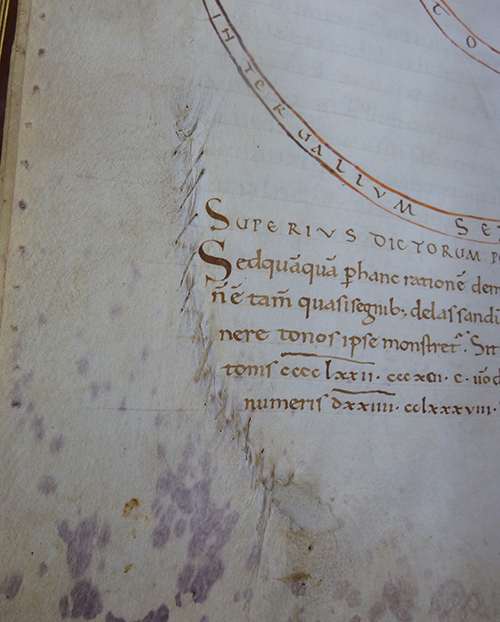 TO
INTERGALLVM SE
SUPERIVS DICTORUM P
Sedquāquā ꝑhanc rationē dem
n̄ē tam̄ quasisegnib; delassandu
nere tonos ipse monstret. Sit
tonis cccc lxxii. cccxcii. c.
numeris dxxiiii. cclxxxviii.